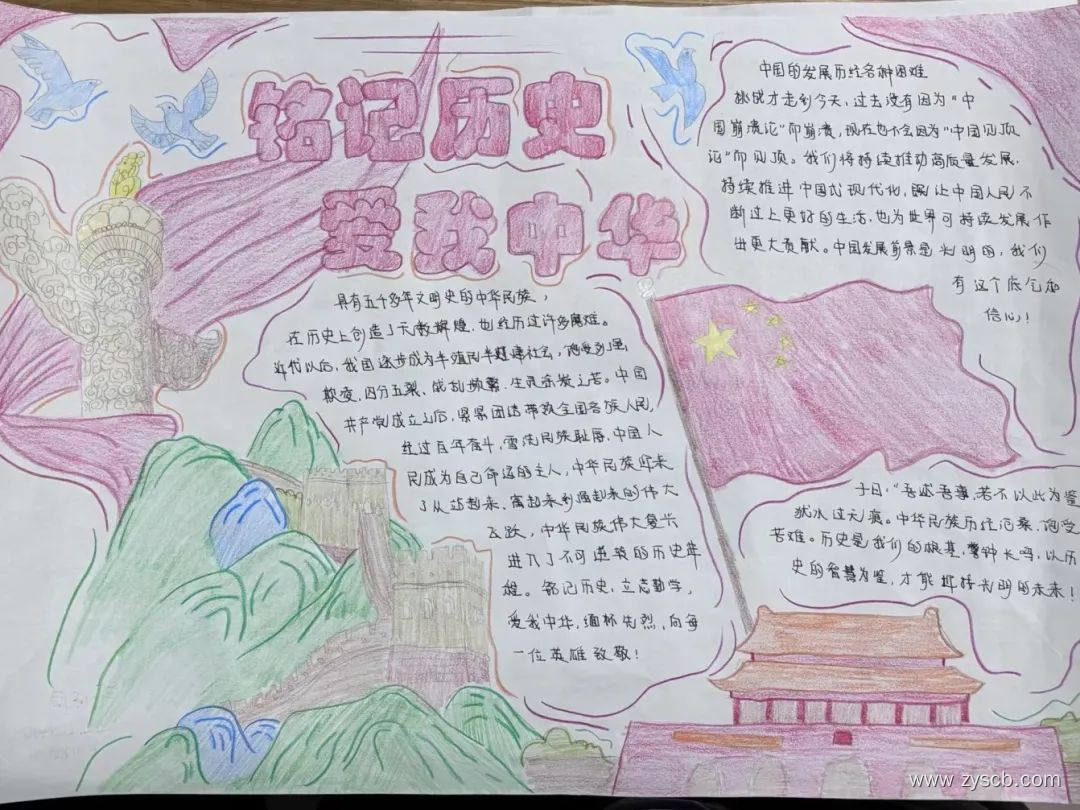 铭记历史
爱我中华
具有五千多年文明史的中华民族，
在历史上创造了无数辉煌，也经历过许多磨难。
近代以后，我国逐步成为半殖民半封建社会，饱受列强
欺凌，四分五裂，战乱频繁，生灵涂炭之苦。中国
共产党成立之后，紧紧团结带领全国各族人民，
经过百年奋斗，雪洗民族耻辱，中国人
民成为自己命运的主人，中华民族迎来
了从站起来、富起来到强起来的伟大
飞跃，中华民族伟大复兴
进入了不可逆转的历史
。铭记历史，立志勤学，
爱我中华，缅怀先烈，向每
一位英雄致敬！
中国的发展历经各种困难
挑战才走到今天，过去没有因为“中
国崩溃论”而崩溃，现在也不会因为“中国见顶
论”而见顶。我们将持续推动高质量发展，
持续推进中国式现代化，既让中国人民不
断过上更好的生活，也为世界可持续发展作
出更大贡献。中国发展前景是光明的，我们
有这个底气和
信心！
子曰，“吾述吾事，若不以此为鉴
犹水过无痕。中华民族历经沧桑，饱受
苦难。历史是我们的根基，警钟长鸣，以历
史的智慧为鉴，才能拥抱光明的未来！
www.zyscb.com